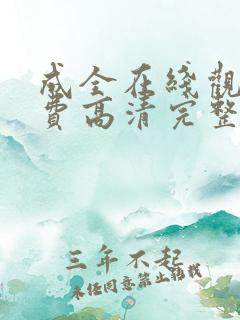 成全在綫觀
費高清完整
三年不起
未经同意禁止转载